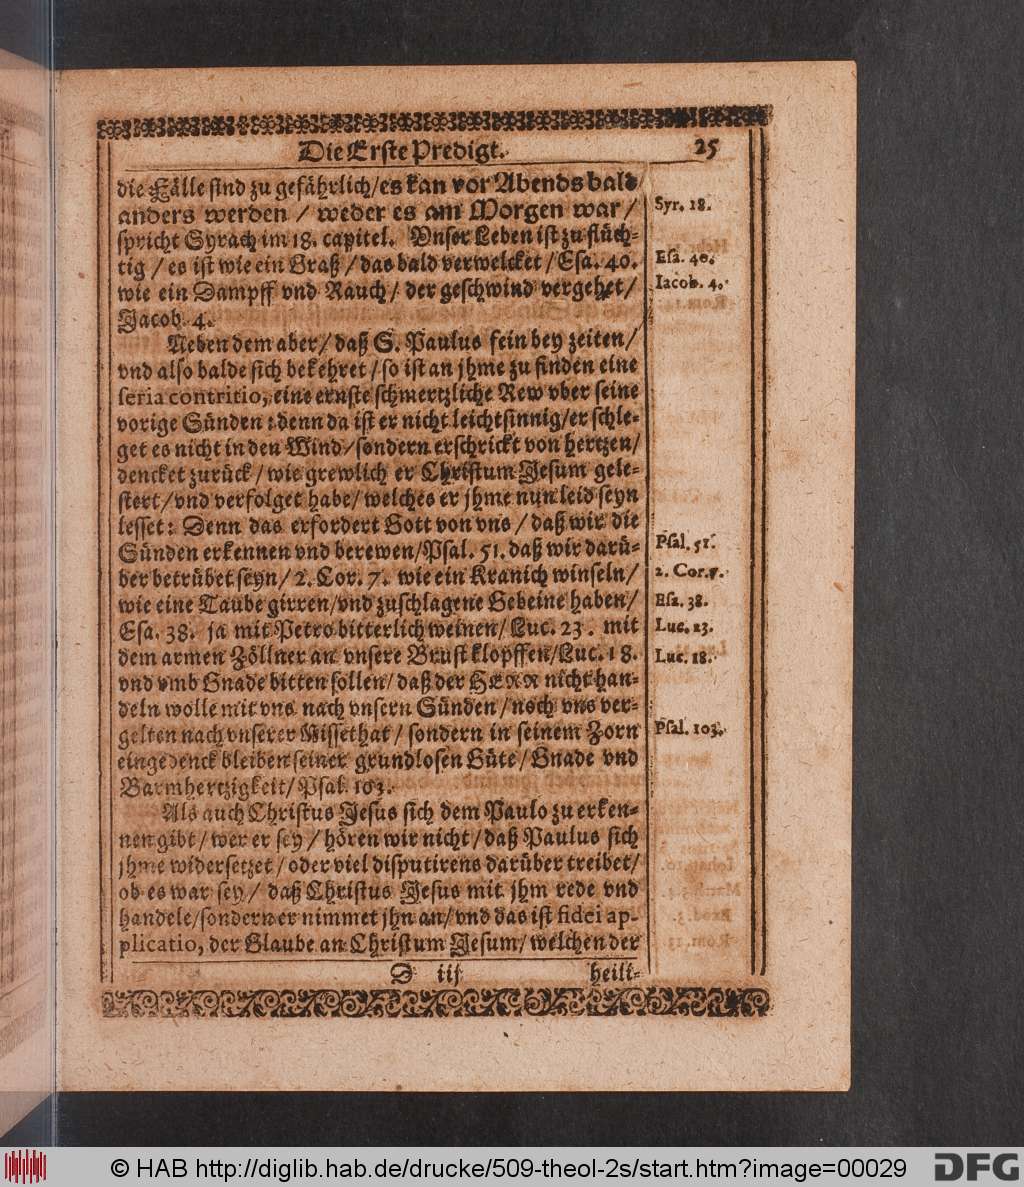 Die Erste Predigt. 25
die Fälle sind zu gefährlich/ es kan vor Abends bald
anders werden / weder es am Morgen war /
spricht Syrach im 18. capitel. Vnser Leben ist zu flüch-
tig / es ist wie ein Graß / das bald verwelcket / Esa. 40.
wie ein Dampff vnd Rauch / der geschwind vergehet /
Jacob. 4.
Neben dem aber / daß S. Paulus fein bey zeiten /
vnd also balde sich bekehret / so ist an jhme zu finden eine
seria contritio, eine ernste schmertzliche Rew vber seine
vorige Sünden: denn da ist er nicht leichtsinnig/ er schle-
get es nicht in den Wind/ sondern erschrickt von hertzen/
dencket zurück / wie grewlich er Christum Jesum gele-
stert / vnd verfolget habe/ welches er jhme nun leid seyn
lesset: Denn das erfordert Gott von vns / daß wir die
Sünden erkennen vnd berewen/ Psal. 51. daß wir darü-
ber betrübet seyn / 2. Cor. 7. wie ein Kranich winseln/
wie eine Taube girren/ vnd zuschlagene Gebeine haben/
Esa. 38. ja mit Petro bitterlich weinen/ Luc. 23. mit
dem armen Zöllner an vnsere Brust klopffen/ Luc. 18.
vnd vmb Gnade bitten sollen/ daß der HERR nicht han-
deln wolle mit vns nach vnsern Sünden / noch vns ver-
gelten nach vnserer Missethat / sondern in seinem Zorn
eingedenck bleiben seiner grundlosen Güte / Gnade vnd
Barmhertzigkeit / Psal. 103.
Als auch Christus Jesus sich dem Paulo zu erken-
nen gibt / wer er sey / hören wir nicht / daß Paulus sich
jhme widersetzet / oder viel disputirens darüber treibet/
ob es war sey / daß Christus Jesus mit jhm rede vnd
handele/ sondern er nimmet jhn an/ vnd das ist fidei ap-
plicatio, der Glaube an Christum Jesum/ welchen der
D iij heili-
Syr. 18.
Esa. 40.
Iacob. 4.
Psal. 51.
2. Cor. 7.
Esa. 38.
Luc. 23.
Luc. 18.
Psal. 103.
© HAB http://diglib.hab.de/drucke/509-theol-2s/start.htm?image=00029
DFG